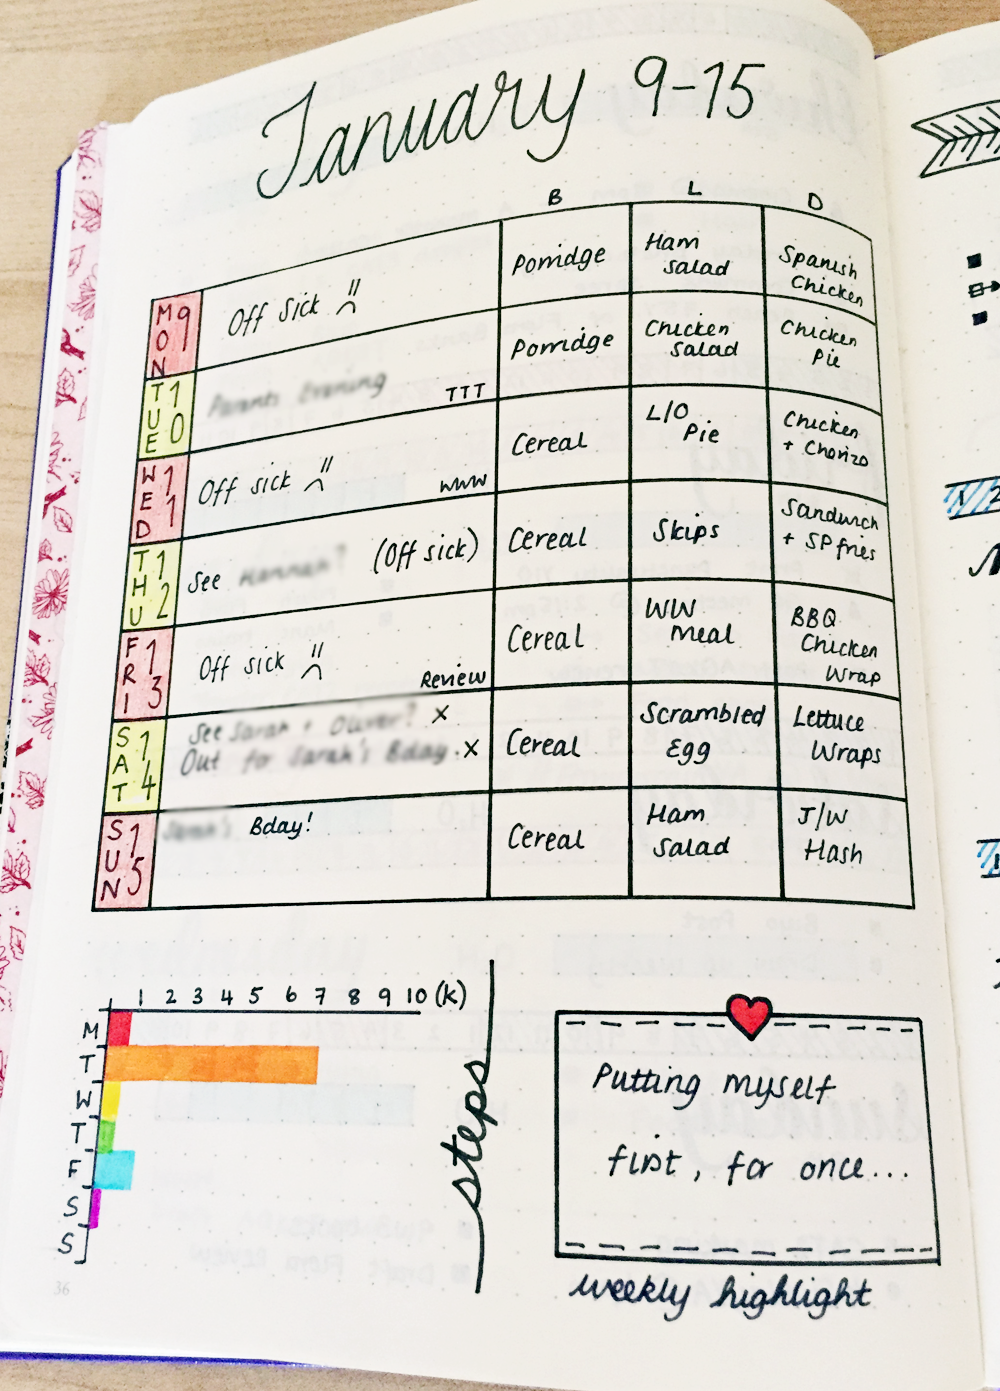 January 9-15
B L D
MON 9
Off Sick
Porridge
Ham
Salad
Spanish
Chicken
TUE 10
Parents Evening
TTT
Porridge
Chicken
Salad
Chicken
Pie
WED 11
Off sick
WWW
Cereal
L/O
Pie
Chicken
+ Chorizo
THU 12
See (Off sick)
Cereal
Skips
Sandwich
+ SP fries
FRI 13
Off sick
Review
Cereal
WW
Meal
BBQ
Chicken
Wrap
SAT 14
See Sarah + Oliver? x
Out for Sarah's Bday. x
Cereal
Scrambled
Egg
Lettuce
Wraps
SUN 15
Bday!
Cereal
Ham
Salad
J/W
Hash
1 2 3 4 5 6 7 8 9 10 (k)
M
T
W
T
F
S
S
steps
Putting myself
first, for once...
weekly highlight
36
1 2